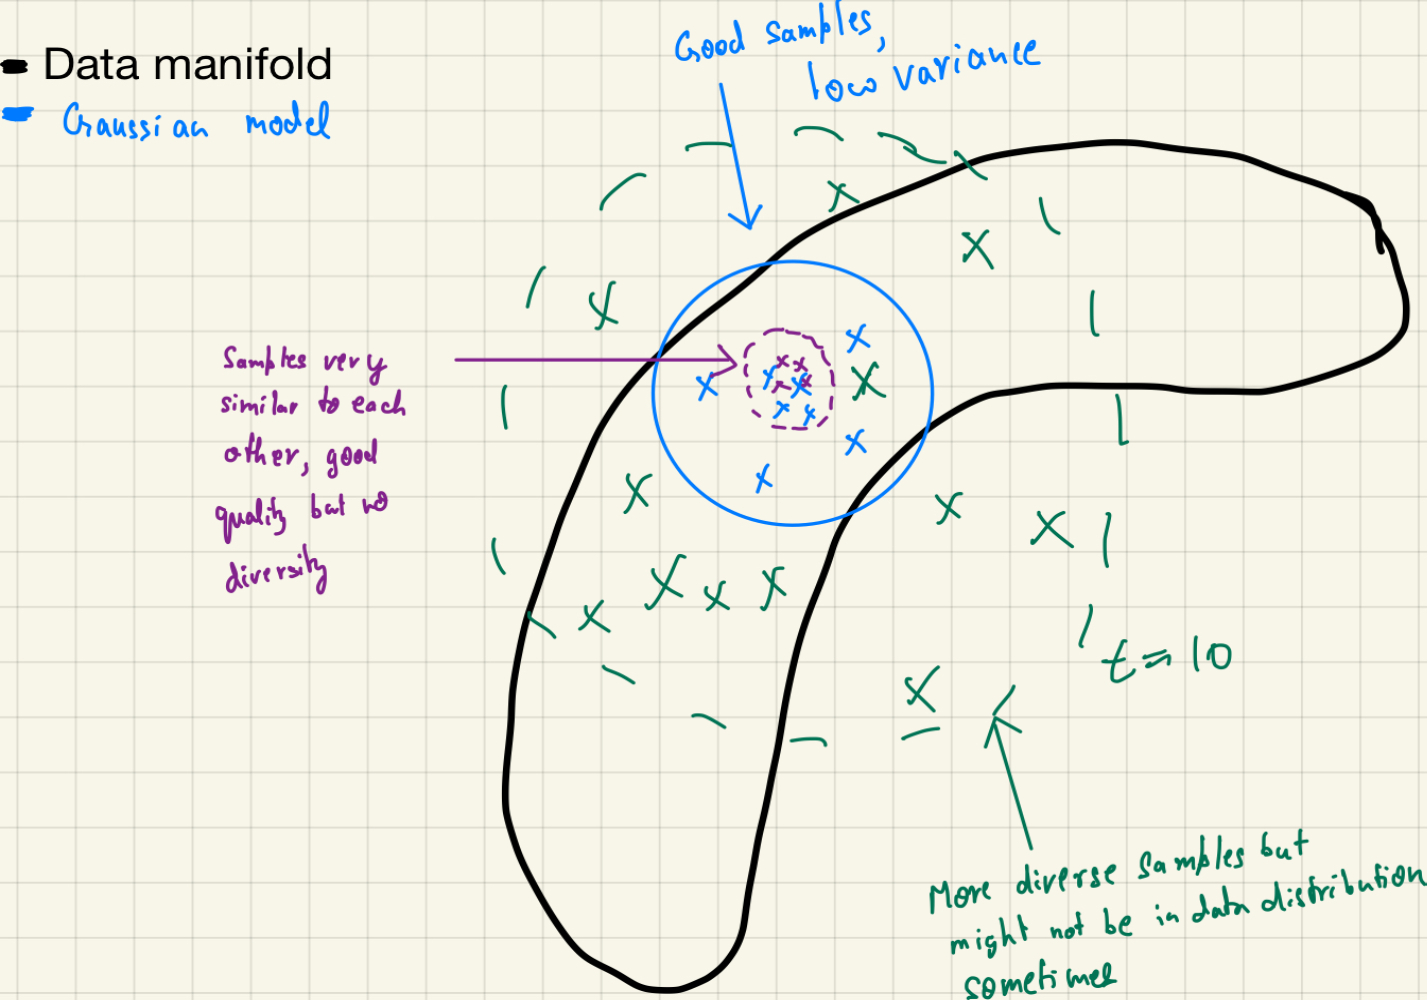 Data manifold
Gaussian model
Good samples,
low variance
Samples very
similar to each
other, good
quality but no
diversity
t=10
More diverse samples but
might not be in data distribution
sometimes